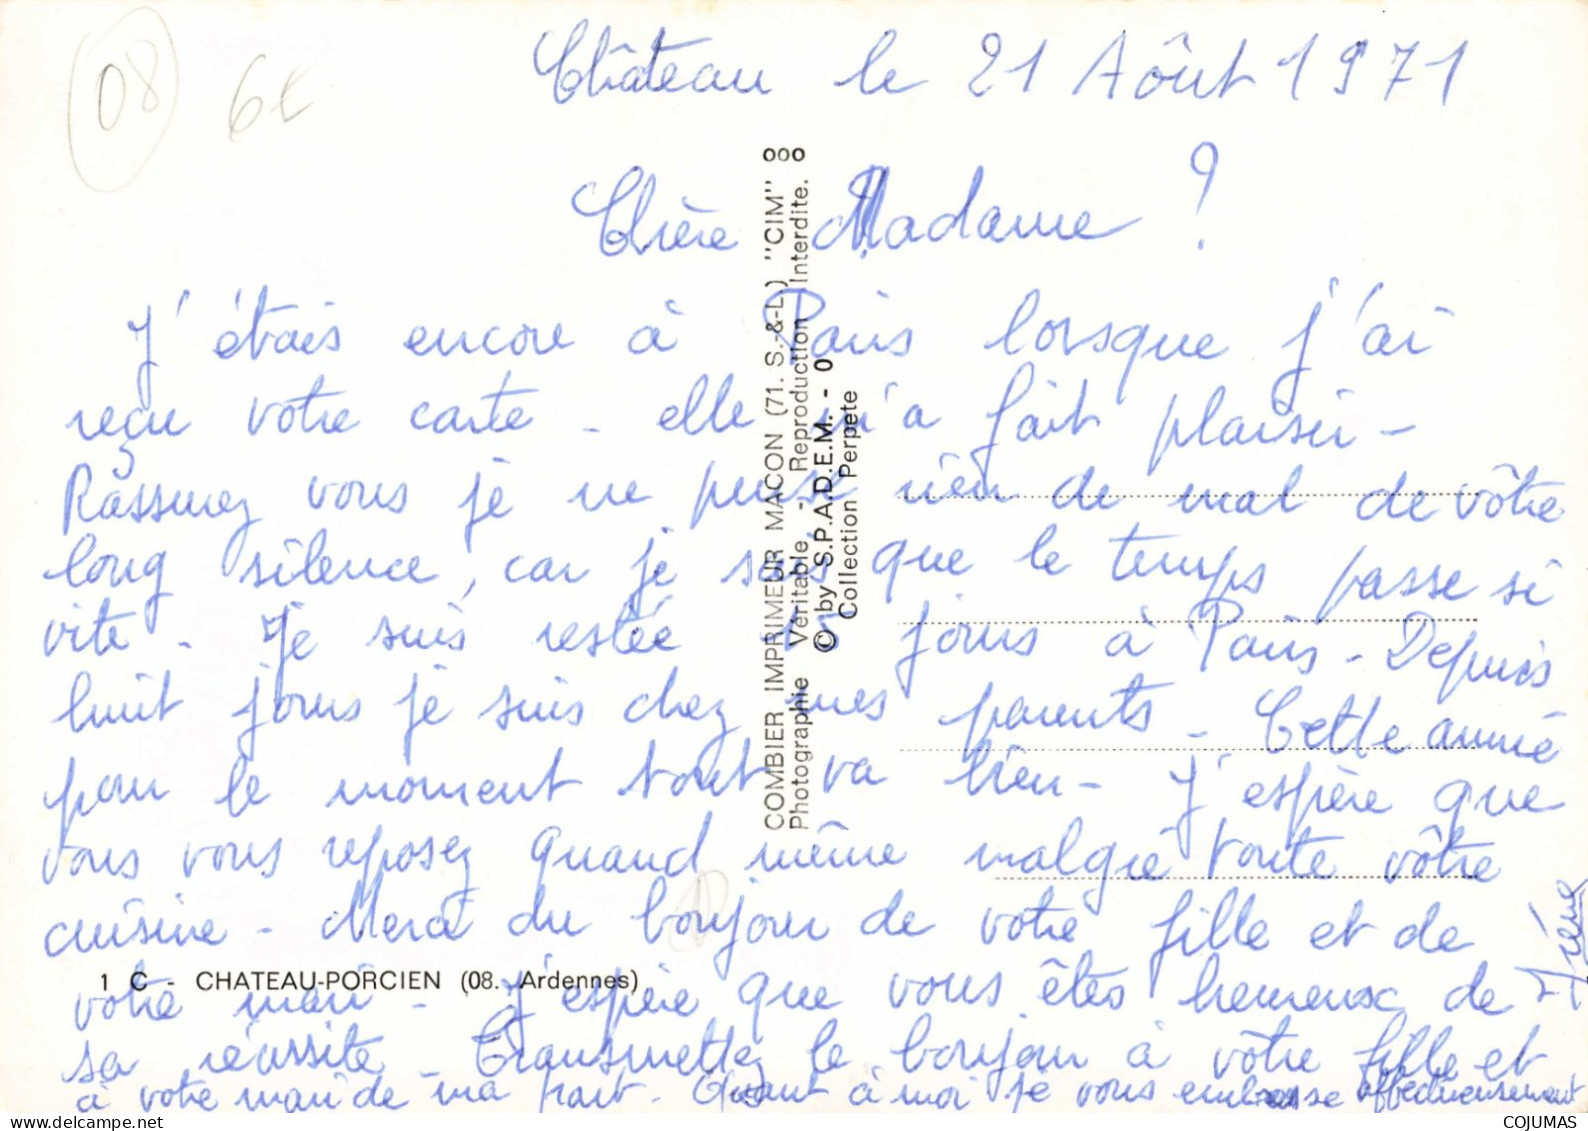 08 6€
Château le 21 Aôut 1971
Chère Madame !
J'étais encore à Paris lorsque j'ai
reçu votre carte - elle m'a fait plaisir -
Rassurez vous je ne pense rien de mal de vôtre
long silence, car je sais que le temps passe si
vite. Je suis restée 15 jours à Paris - Depuis
huit jours je suis chez mes parents - Cette année
pour le moment tout va bien - J'espère que
vous vous reposez quand même malgré toute vôtre
cuisine - Merci du bonjour de votre fille et de
votre mari - J'espère que vous êtes heureux de
sa réussite - Transmettez le bonjour à vôtre fille et
à votre mari de ma part. Quant à moi je vous embrasse affectueusement
Irène
COMBIER IMPRIMEUR MACON (71. S.-&-L.) "CIM"
Photographie Véritable - Reproduction Interdite.
© by S.P.A.D.E.M. - 0
Collection Perpete
1 C - CHATEAU-PORCIEN (08. Ardennes)
COJUMAS